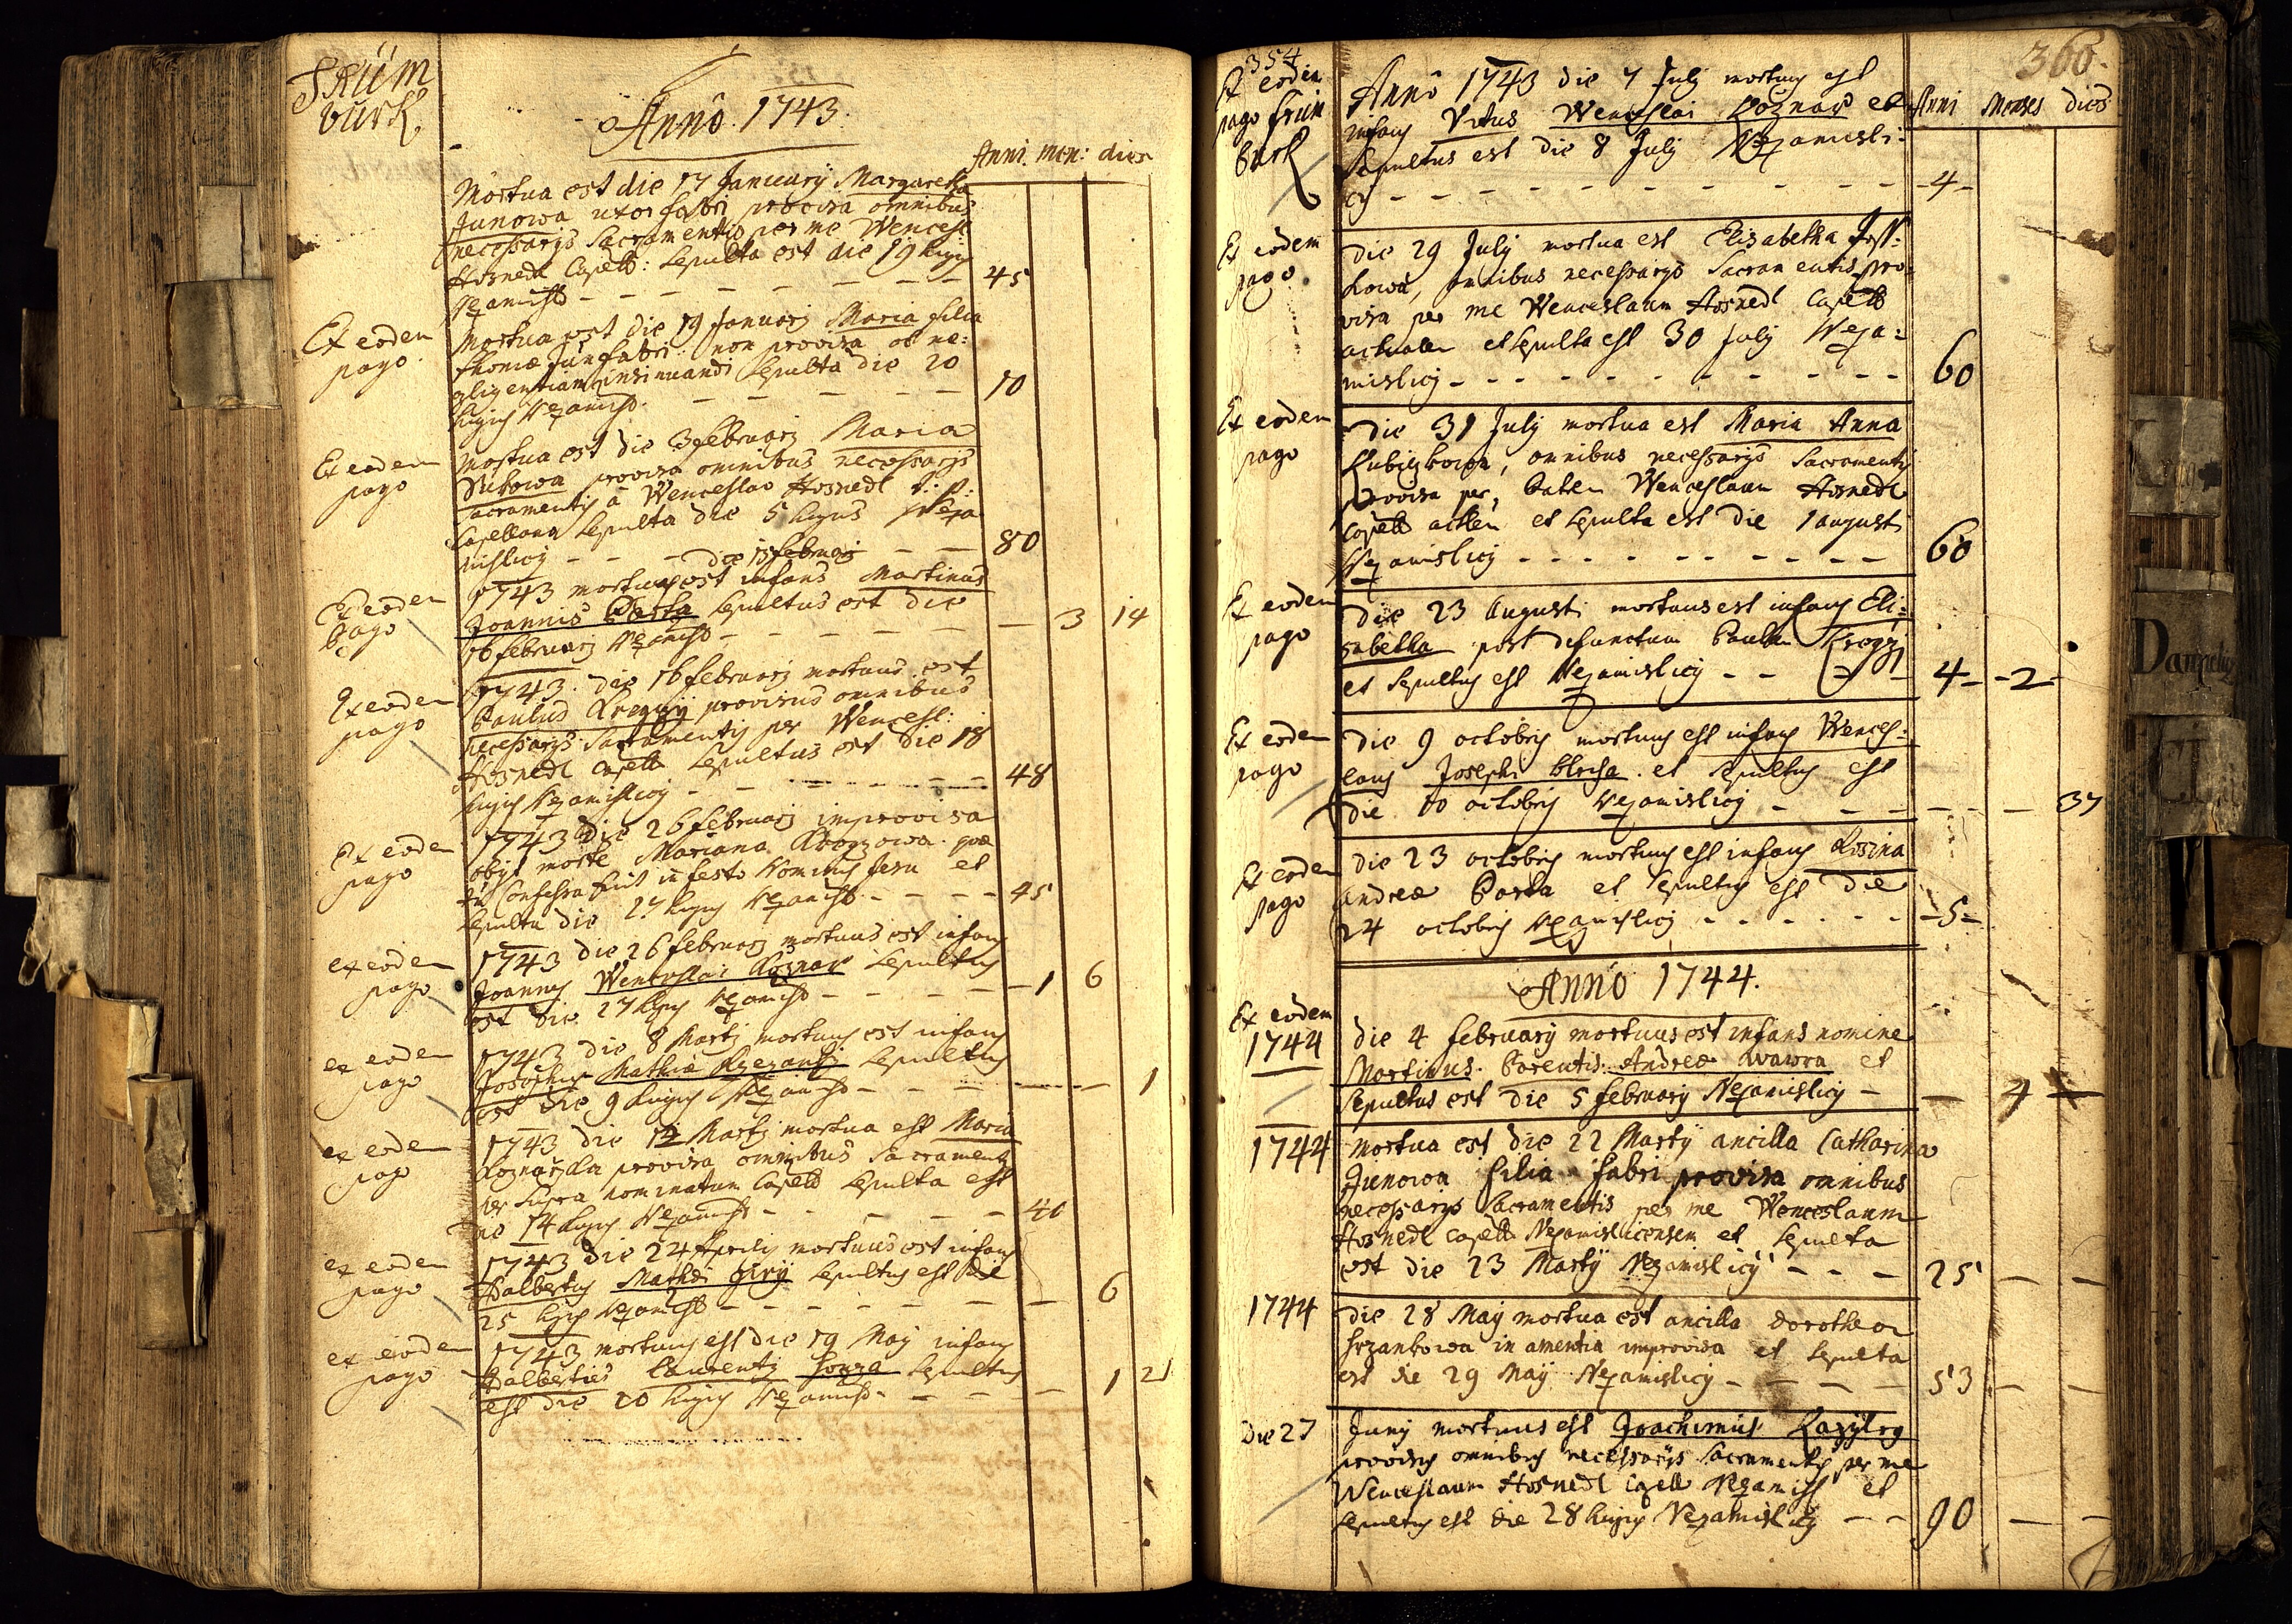 Anno 1743.
Anni. men: dies
Mortua est die 17 January Margaretha
Junowa uxor fabri provisa omnibus
necessarys Sacramentis per me Wencesl
Hosnedl Capell: Sepulta est die 19 hujus
Nezamisl - - - - - - - 45
Ex eodem pago
Mortua est die 19 January Maria filia
Thomæ Jun fabri non provisa ob ne:
gligentiam insinuandi Sepulta die 20
hujus Nezamisl. - - - - - 10
Ex eodem pago
Mortua est die 3 february Maria
provisa omnibus necessarys
Sacramentis a Wenceslao Hosnedl
Capellano Sepulta die 5 hujus Neza
mislicij - - - - - 80
die 15 february
Ex eodem pago
1743 mortuus est infans Martinus
Joannis Barta Sepultus est die
16 february Nezamisl - - - - - 3 14
Ex eodem pago
1743. die 16 february mortuus est
Paulus provisus omnibus
necessarys Sacramentis per Wencesl:
Hosnedl Capell Sepultus est die 18
hujus Nezamislicij - - - - - 48
Ex eodem pago
1743 die 26 february improvisa
obyt morte Mariana quæ
Confessa fuit in festo Nominis Jesu et
Sepulta die 27 hujus Nezamisl - - - - 45
ex eodem pago
1743 die 26 february mortuus est infans
Joannes Wenceslai Koznar Sepultus
est die 27 hujus Nezamisl - - - - 1 6
ex eodem pago
1743 die 8 Martij mortuus est infans
Josephus Mathiæ Sepultus
est die 9 hujus Nezamisl - - - - - 1
ex eodem pago
1743 die 12 Martij mortua est Maria
provisa omnibus Sacramentis
per Supra nominatum Capell Sepulta est
die 14 hujus Nezamisl - - - - - 40
ex eodem pago
1743 die 24 Aprilis mortuus est infans
Adalbertus Mathæi Jiry Sepultus est die
25 hujus Nezamisl - - - - - - 6
ex eodem pago
1743 mortuus est die 19 Maij infans
Adalbertus Laurentij Sepultus
est die 20 hujus Nezamisl - - - - 1 21
354
360.
Anni Menses dies
Ex eodem pago
Anno 1743 die 7 July mortuus est
infans Vitus Wenceslai Koznar et
Sepultus est die 8 July Nezamisli:
cij - - - - - - - - - - - 4 -
Ex eodem pago
Die 29 July mortua est Elisabetha
kowa, omnibus necessarys Sacramentis pro:
visa per me Wenceslaum Hosnedl Capell
actualem et Sepulta est 30 July Neza:
mislicij - - - - - - - - - - 60
Ex eodem pago
Die 31 July mortua est Maria Anna
omnibus necessarys Sacramentis
provisa per Patrem Wenceslaum Hosnedl
Capell et Sepulta est die 1 augusti
Nezamislicij - - - - - - - - - 60
Ex eodem pago
Die 23 Augusti mortuus est infans Eli:
sabetha post defunctum Paulum
et Sepultus est Nezamislicij - - - 4 - - 2 -
Ex eodem pago
Die 9 octobris mortuus est infans Wences:
laus Josephi et Sepultus est
die 10 octobris Nezamislicij - - - - - 37
Ex eodem pago
Die 23 octobris mortuus est infans Rosina
Andreæ Barta et Sepultus est die
24 octobris Nezamislicij - - - - - - - 5 -
Anno 1744.
Ex eodem 1744
Die 4 february mortuus est infans nomine
Martinus Parentis: Andreæ Wawra et
Sepultus est die 5 february Nezamislicij - - 4 -
1744
Mortua est die 22 Martij ancilla Catharina
Junowa filia fabri provisa omnibus
necessarys Sacramentis per me Wenceslaum
Hosnedl Capell Nezamislicensem et Sepulta
est die 23 Martij Nezamislicij - - - 25 - -
1744
Die 28 Maij mortua est ancilla Dorothea
in amentia improvisa et Sepulta
est die 29 Maij Nezamislicij - - - - 53 - -
Die 27
Junij mortuus est Joachimus
provisus omnibus necessarijs Sacramentis per me
Wenceslaum Hosnedl Capell Nezamisl et
Sepultus est die 28 hujus Nezamislicij - - 90 - -